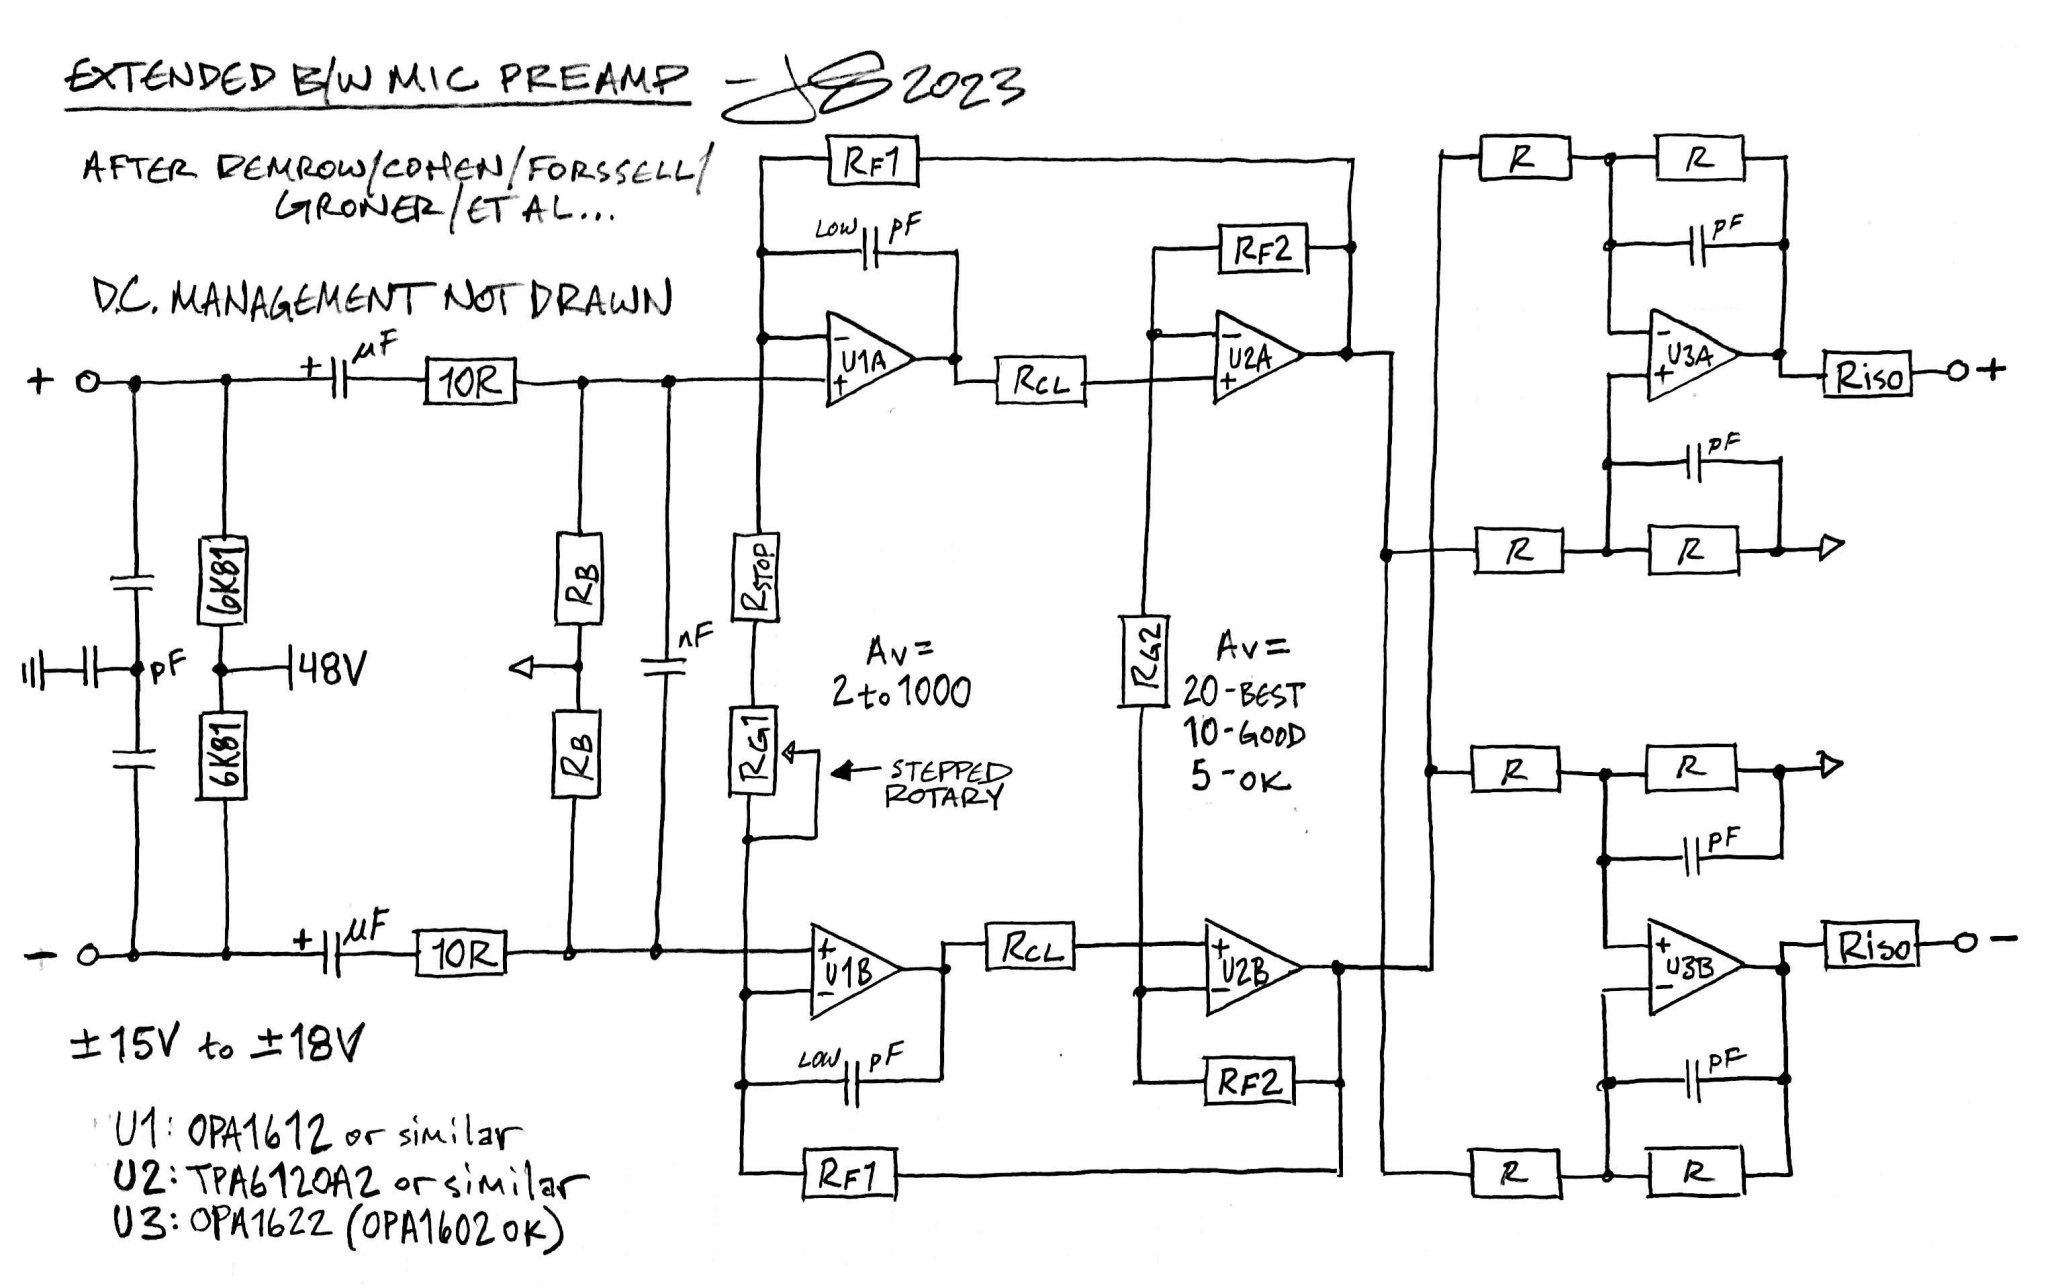 EXTENDED B/W MIC PREAMP -JS 2023
AFTER DEMROW/COHEN/FORSSELL/
GRONER/ET AL...
D.C. MANAGEMENT NOT DRAWN
RF1
LOW pF
RF2
R
R
pF
+
+ µF
10R
-
U1A
+
RCL
-
U2A
+
-
U3A
+
RISO
+
pF
R
R
6K81
RB
RSTOP
pF
48V
nF
AV=
2 to 1000
RG2
AV=
20-BEST
10-GOOD
5-OK
6K81
RB
RG1
STEPPED
ROTARY
R
R
pF
-
+ µF
10R
+
U1B
-
RCL
+
U2B
-
+
U3B
-
RISO
-
LOW pF
RF2
pF
RF1
R
R
±15V to ±18V
U1: OPA1612 or similar
U2: TPA6120A2 or similar
U3: OPA1622 (OPA1602 OK)